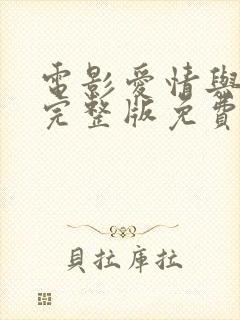 電影愛情與
完整版免費
貝拉庫拉